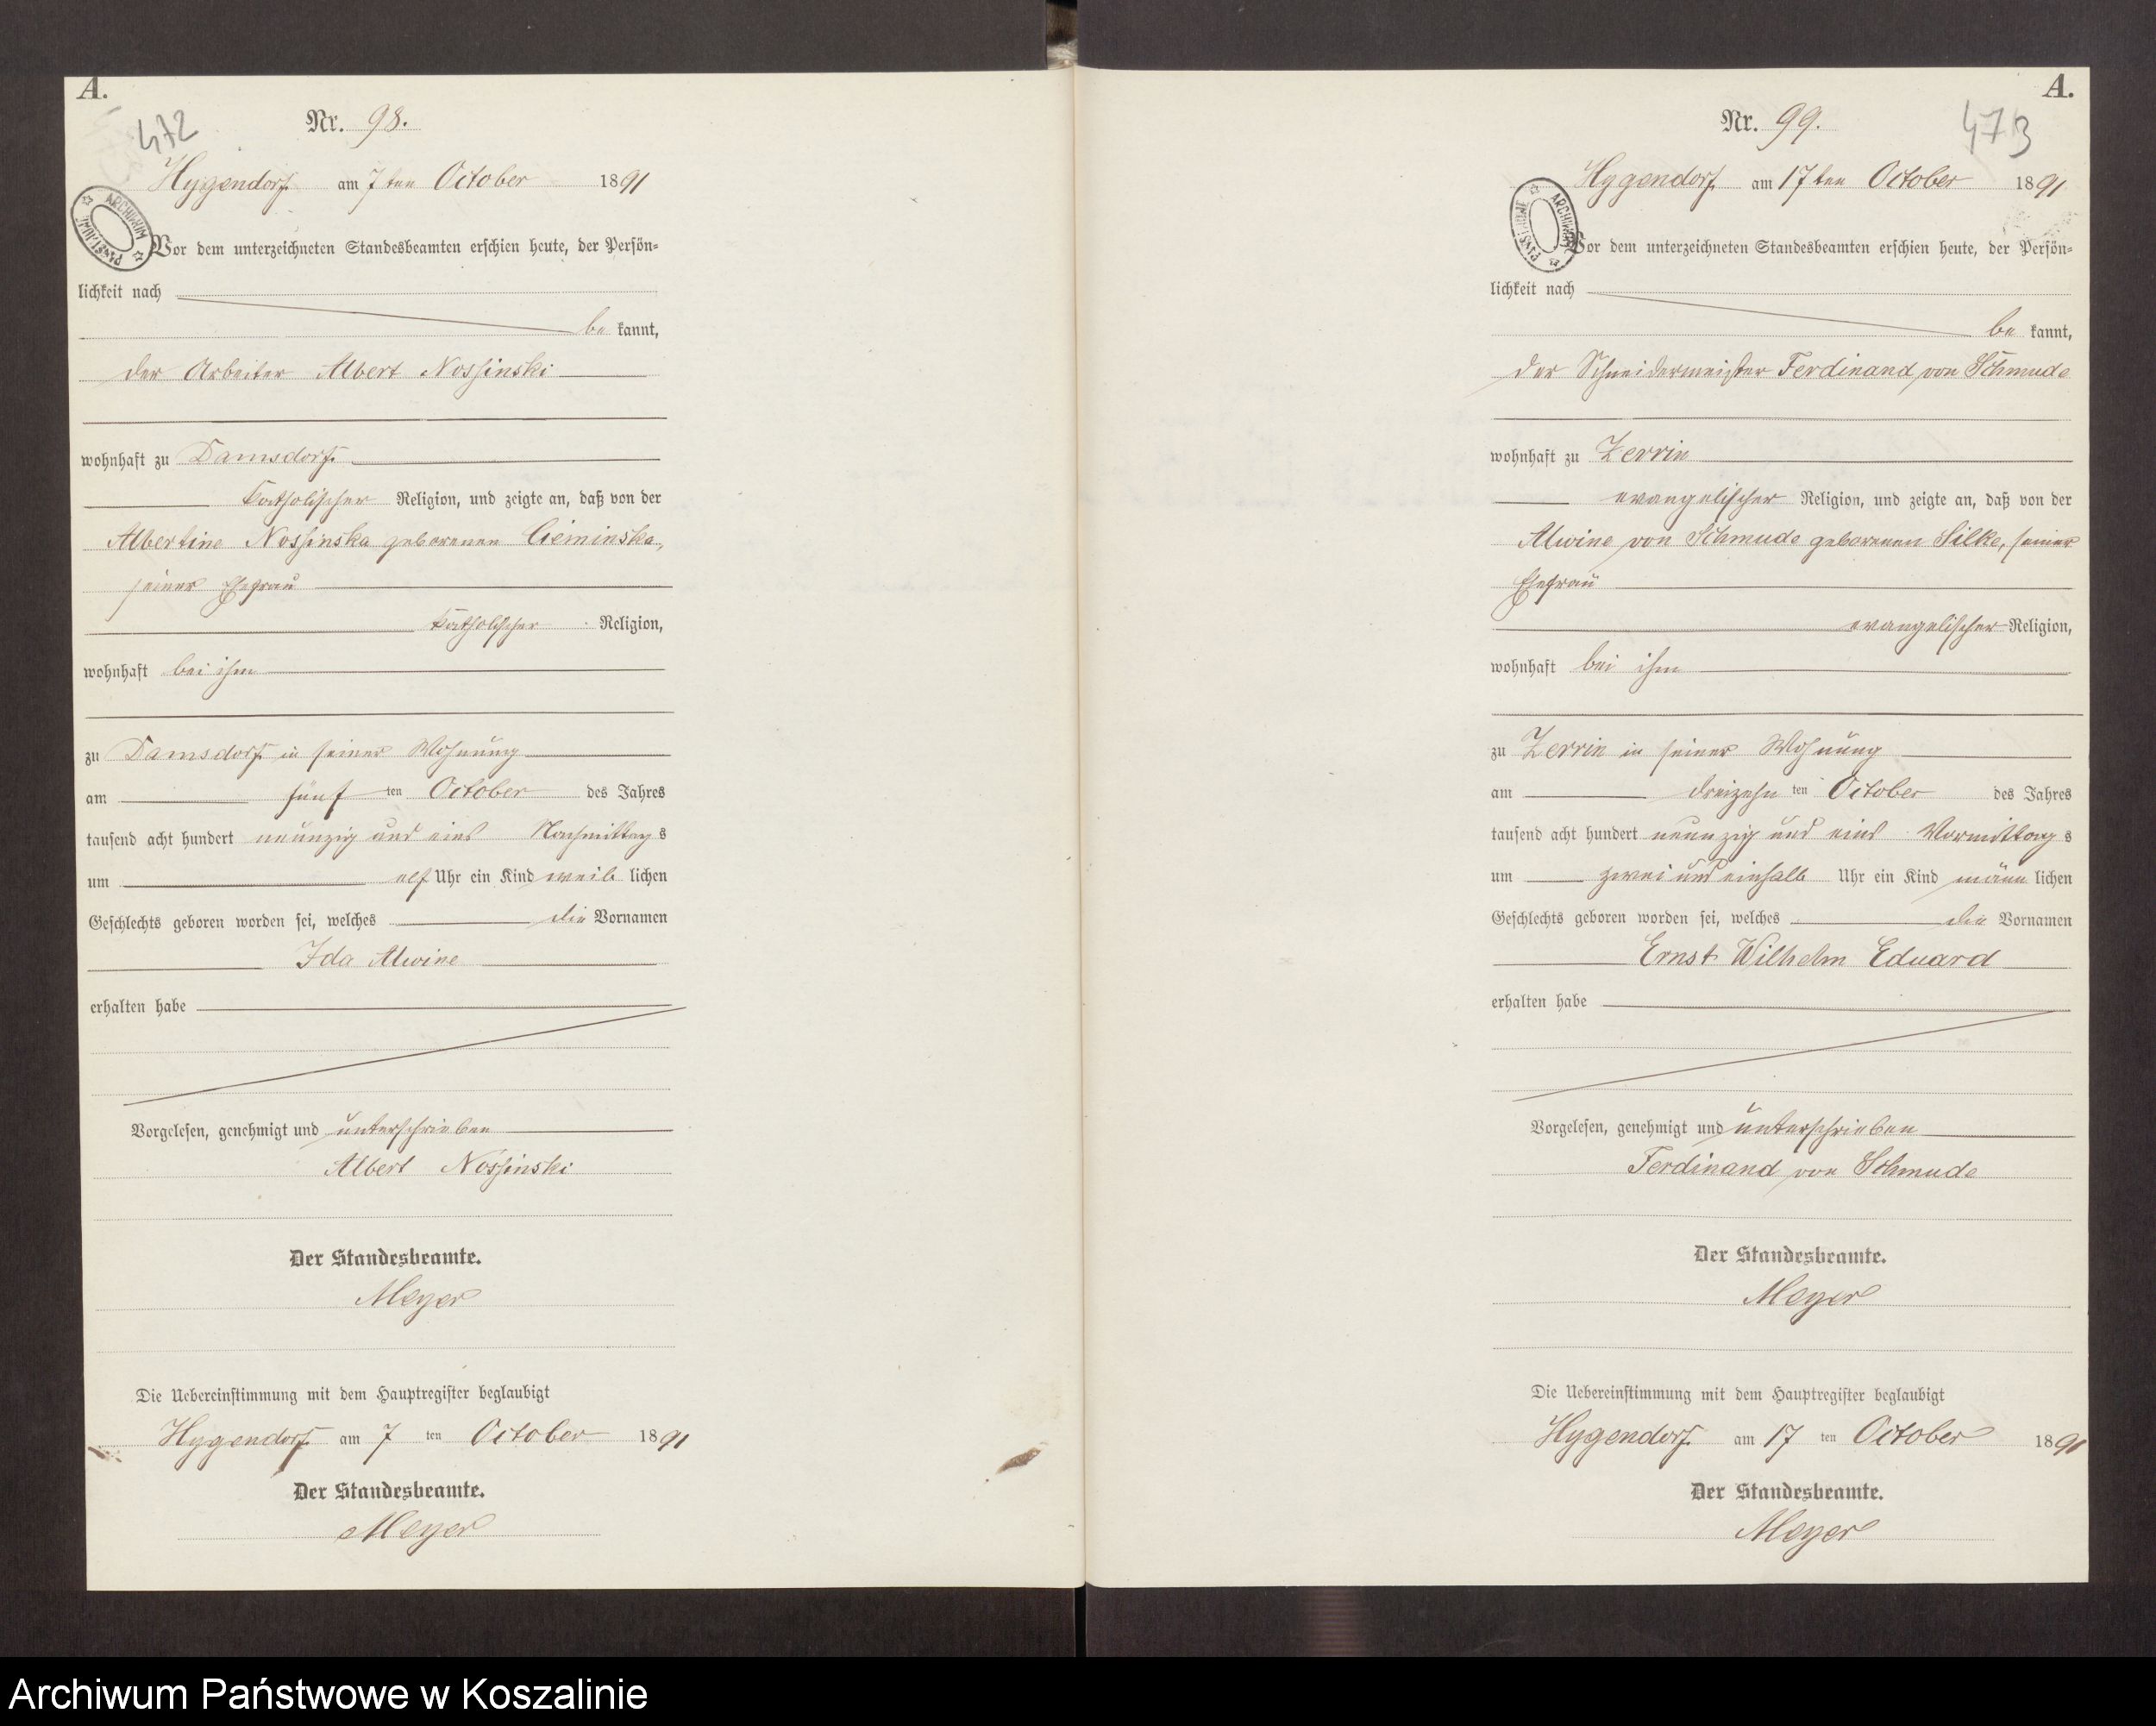 A.
472
Nr. 98.
Hygendorf am 7ten October 1891
ARCHIWUM PAŃSTWOWE
Vor dem unterzeichneten Standesbeamten erschien heute, der Persön-
lichkeit nach
be kannt,
der Arbeiter Albert Nossinski
wohnhaft zu Damsdorf
katholischer Religion, und zeigte an, daß von der
Albertine Nossinska geborenen Cieminska,
seiner Ehefrau
katholischer Religion,
wohnhaft bei ihm
zu Damsdorf in seiner Wohnung
am fünf ten October des Jahres
tausend acht hundert neunzig und eins Nachmittag s
um elf Uhr ein Kind weib lichen
Geschlechts geboren worden sei, welches die Vornamen
Ida Alwine
erhalten habe
Vorgelesen, genehmigt und unterschrieben
Albert Nossinski
Der Standesbeamte.
Meyer
Die Uebereinstimmung mit dem Hauptregister beglaubigt
Hygendorf am 7 ten October 1891
Der Standesbeamte.
Meyer
A.
473
Nr. 99.
Hygendorf am 17ten October 1891
ARCHIWUM PAŃSTWOWE
Vor dem unterzeichneten Standesbeamten erschien heute, der Persön-
lichkeit nach
be kannt,
der Schneidermeister Ferdinand von Schmude
wohnhaft zu Zerrin
evangelischer Religion, und zeigte an, daß von der
Alwine von Schmude geborenen Silke, seiner
Ehefrau
evangelischer Religion,
wohnhaft bei ihm
zu Zerrin in seiner Wohnung
am dreizehn ten October des Jahres
tausend acht hundert neunzig und eins Vormittag s
um zwei und einhalb Uhr ein Kind männ lichen
Geschlechts geboren worden sei, welches die Vornamen
Ernst Wilhelm Eduard
erhalten habe
Vorgelesen, genehmigt und unterschrieben
Ferdinand von Schmude
Der Standesbeamte.
Meyer
Die Uebereinstimmung mit dem Hauptregister beglaubigt
Hygendorf am 17 ten October 1891
Der Standesbeamte.
Meyer
Archiwum Państwowe w Koszalinie